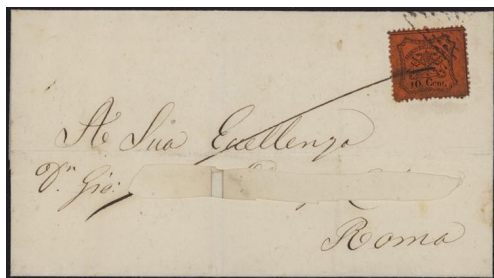 10 Cent.
A Sua Eccellenza
Dn. Gio:
Roma